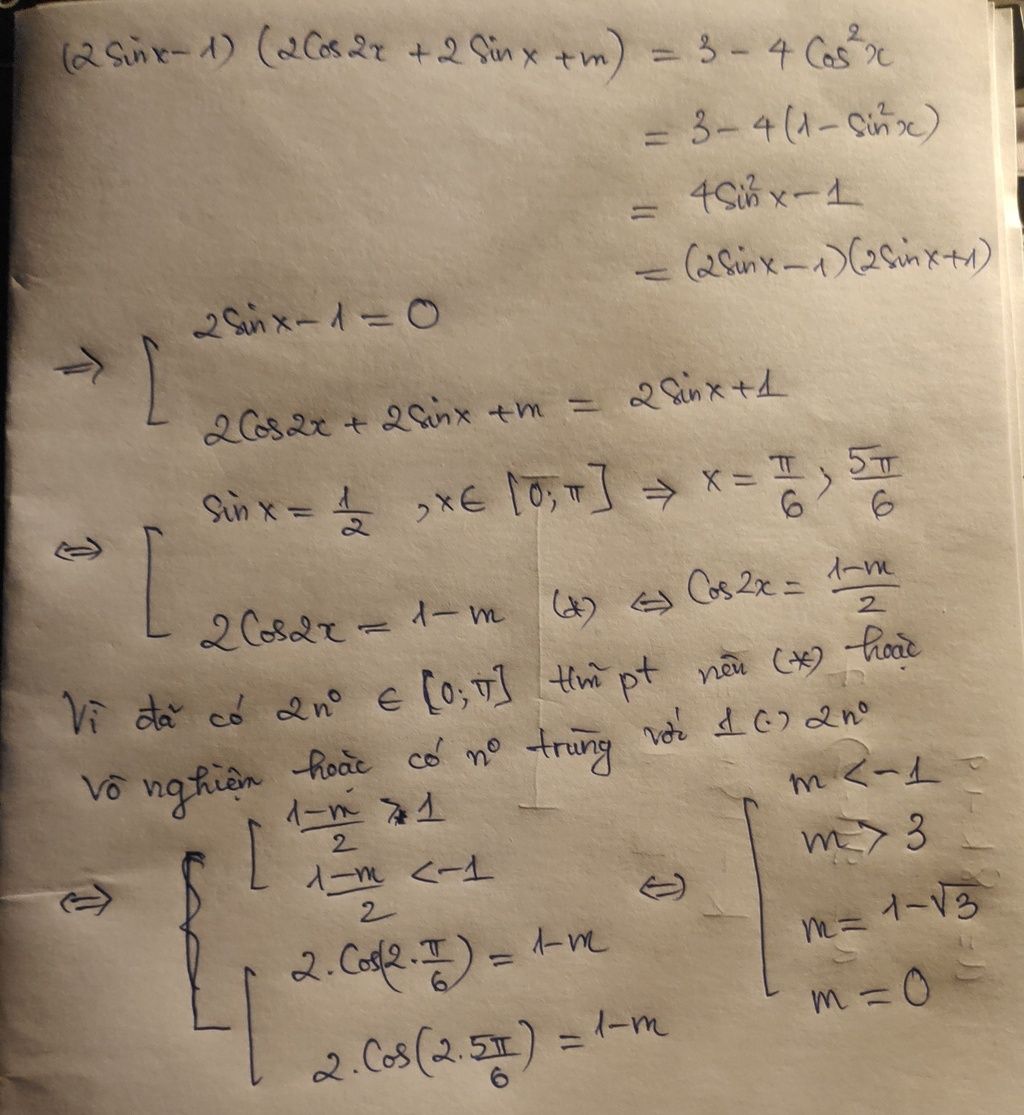 (2Sinx-1) (2Cos2x + 2Sinx + m) = 3 - 4Cos²x
= 3 - 4(1 - Sin²x)
= 4Sin²x - 1
= (2Sinx - 1)(2Sinx + 1)
⇒ [ 2Sinx - 1 = 0
2Cos2x + 2Sinx + m = 2Sinx + 1
⇔ [ Sinx = 1/2 , x ∈ [0; π] ⇒ x = π/6 ; 5π/6
2Cos2x = 1 - m (*) ⇔ Cos2x = (1-m)/2
Vì đã có 2n⁰ ∈ [0; π] pt nên (*) hoặc
vô nghiệm hoặc có n⁰ trùng với 1 (:) 2n⁰
⇔ [ [ (1-m)/2 > 1
(1-m)/2 < -1
[ 2.Cos(2.π/6) = 1-m
2.Cos(2.5π/6) = 1-m
⇔ [ m < -1
m > 3
m = 1-√3
m = 0